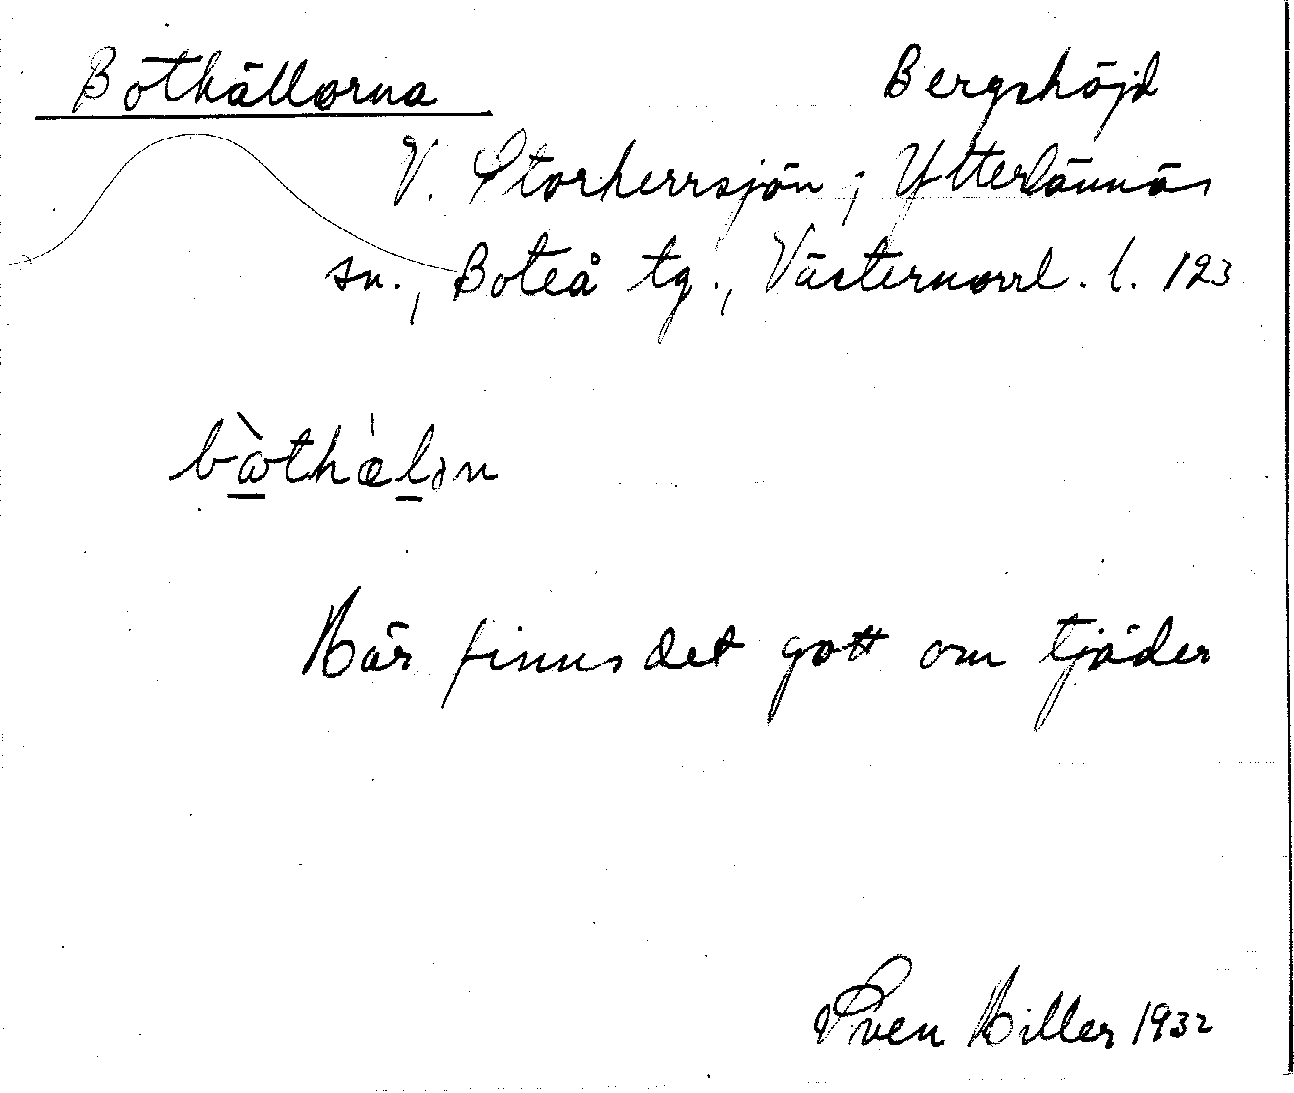 Bothällorna Bergshöjd
V. Storherrsjön; Ytterlännäs
sn., Boteå tg., Västernorrl. l. 123
bòthälən
Här finns det gott om tjäder
Sven Hiller 1932